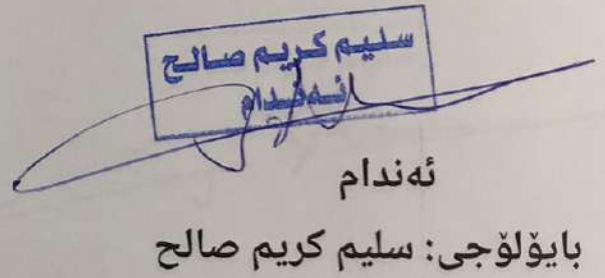 سليم كريم صالح
ئەندام
ئەندام
بایۆلۆجی: سلیم کریم صالح